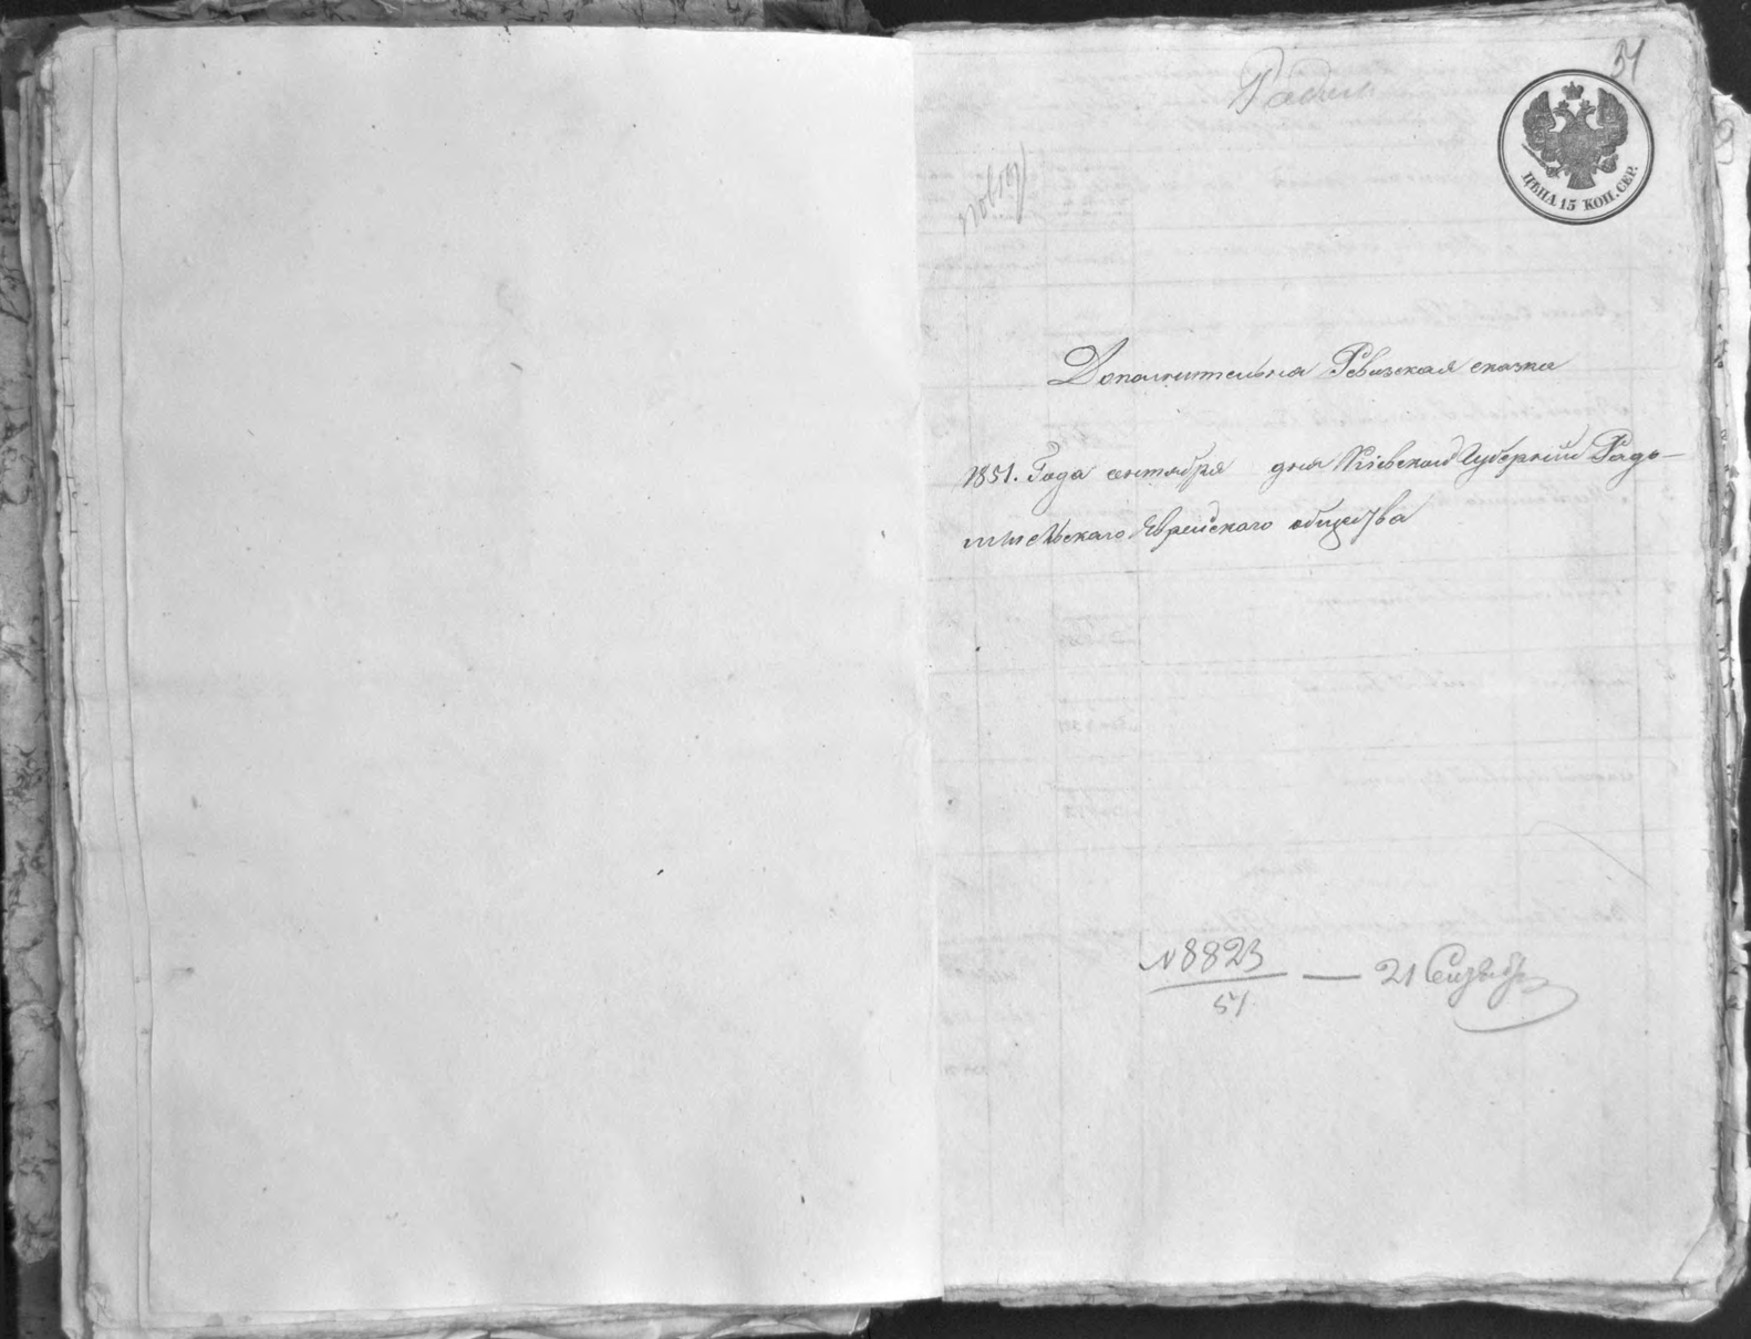 51
Радом
ЦѢНА 15 КОП. СЕР.
Дополнительна Ревизская сказка
1851. Года сентября дня Кіевской Губерніи Радо-
мысльскаго Еврейского общества
№ 8823 — 21 Сентября
51